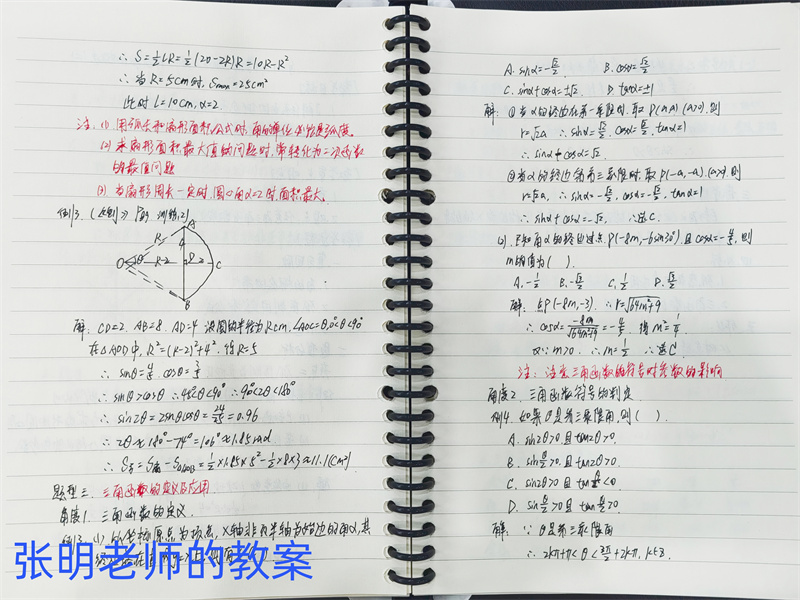 ∴ S=½LR=½(20-2R)R=10R-R²
∴ 当R=5cm时, Smax=25cm²
此时 L=10cm, α=2.
注: (1) 用弧长和扇形面积公式时, 角的单位必须是弧度.
(2) 求扇形面积最大值的问题时, 常转化为二次函数
的最值问题
(3) 当扇形周长一定时, 圆心角α=2时, 面积最大.
例3.
R
A
4
O
θ
R-2
D
2
C
B
解: CD=2. AB=8. AD=4 设圆的半径为Rcm, ∠AOC=θ, 0°<θ<90°
在△AOD中, R²=(R-2)²+4². 得R=5
∴ sinθ=4/5. cosθ=3/5
∴ sinθ>cosθ ∴45°<θ<90° ∴90°<2θ<180°
∴ sin2θ=2sinθcosθ=24/25=0.96
∴ 2θ≈180°-74°=106°≈1.85rad
∴ ≈11.1(cm²)
题型三. 三角函数的定义及应用
角度1. 三角函数的定义
例3. (1) 以坐标原点为顶点, x轴非负半轴为始边的角α, 其
张明老师的教案
A. sinα=-√2/2. B. cosα=√2/2
C. sinα+cosα=±√2. D. tanα=±1
解: ①当α的终边在第一象限时, 取P(a,a) (a>0). 则
r=√2a ∴ sinα=√2/2, cosα=√2/2, tanα=1
∴ sinα+cosα=√2.
②当α的终边在第三象限时, 取P(-a,-a) (a>0), 则
r=√2a, ∴ sinα=-√2/2, cosα=-√2/2, tanα=1
∴ sinα+cosα=-√2, ∴选C.
(2). 已知角α的终边过点P(-8m,-6sin30°) 且cosα=-4/5, 则
m的值为( ).
A. -½ B. -√3/2 C. ½ D. √3/2
解: 点P(-8m,-3). ∴r=√(64m²+9)
∴ cosα=-8m/√(64m²+9)=-4/5. 得m²=¼
又∵m>0. ∴m=½ ∴选C
注: 注意三角函数的符号对参数的影响
角度2. 三角函数符号的判定
例4. 如果θ是第三象限角, 则( ).
A. sin2θ>0 且tan2θ>0.
B. sinθ/2>0. 且tan2θ>0.
C. sin2θ>0 且tanθ/2<0
D. sinθ/2>0 且tanθ/2>0.
解: ∵ θ是第三象限角
∴ 2kπ+π<θ<3π/2+2kπ, k∈Z.